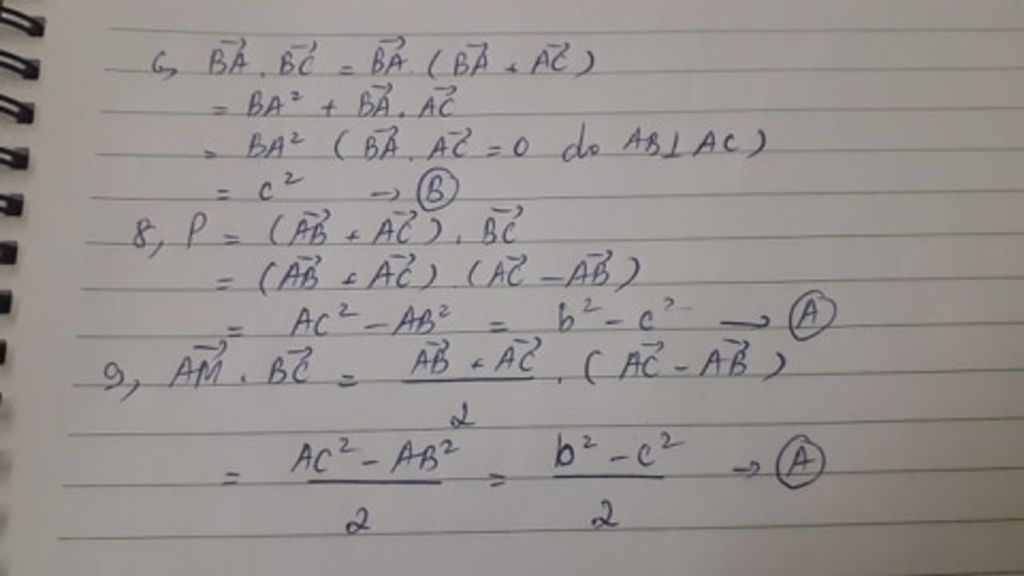 6, $\vec{BA} . \vec{BC} = \vec{BA} . (\vec{BA} + \vec{AC})$
$= BA^2 + \vec{BA} . \vec{AC}$
$= BA^2$ ($\vec{BA} . \vec{AC} = 0$ do $AB \perp AC$)
$= c^2$ → Ⓑ
8, $P = (\vec{AB} + \vec{AC}) . \vec{BC}$
$= (\vec{AB} + \vec{AC}) (\vec{AC} - \vec{AB})$
$= AC^2 - AB^2 = b^2 - c^2$ → Ⓐ
9, $\vec{AM} . \vec{BC} = \frac{\vec{AB} + \vec{AC}}{2} . (\vec{AC} - \vec{AB})$
$= \frac{AC^2 - AB^2}{2} = \frac{b^2 - c^2}{2}$ → Ⓐ